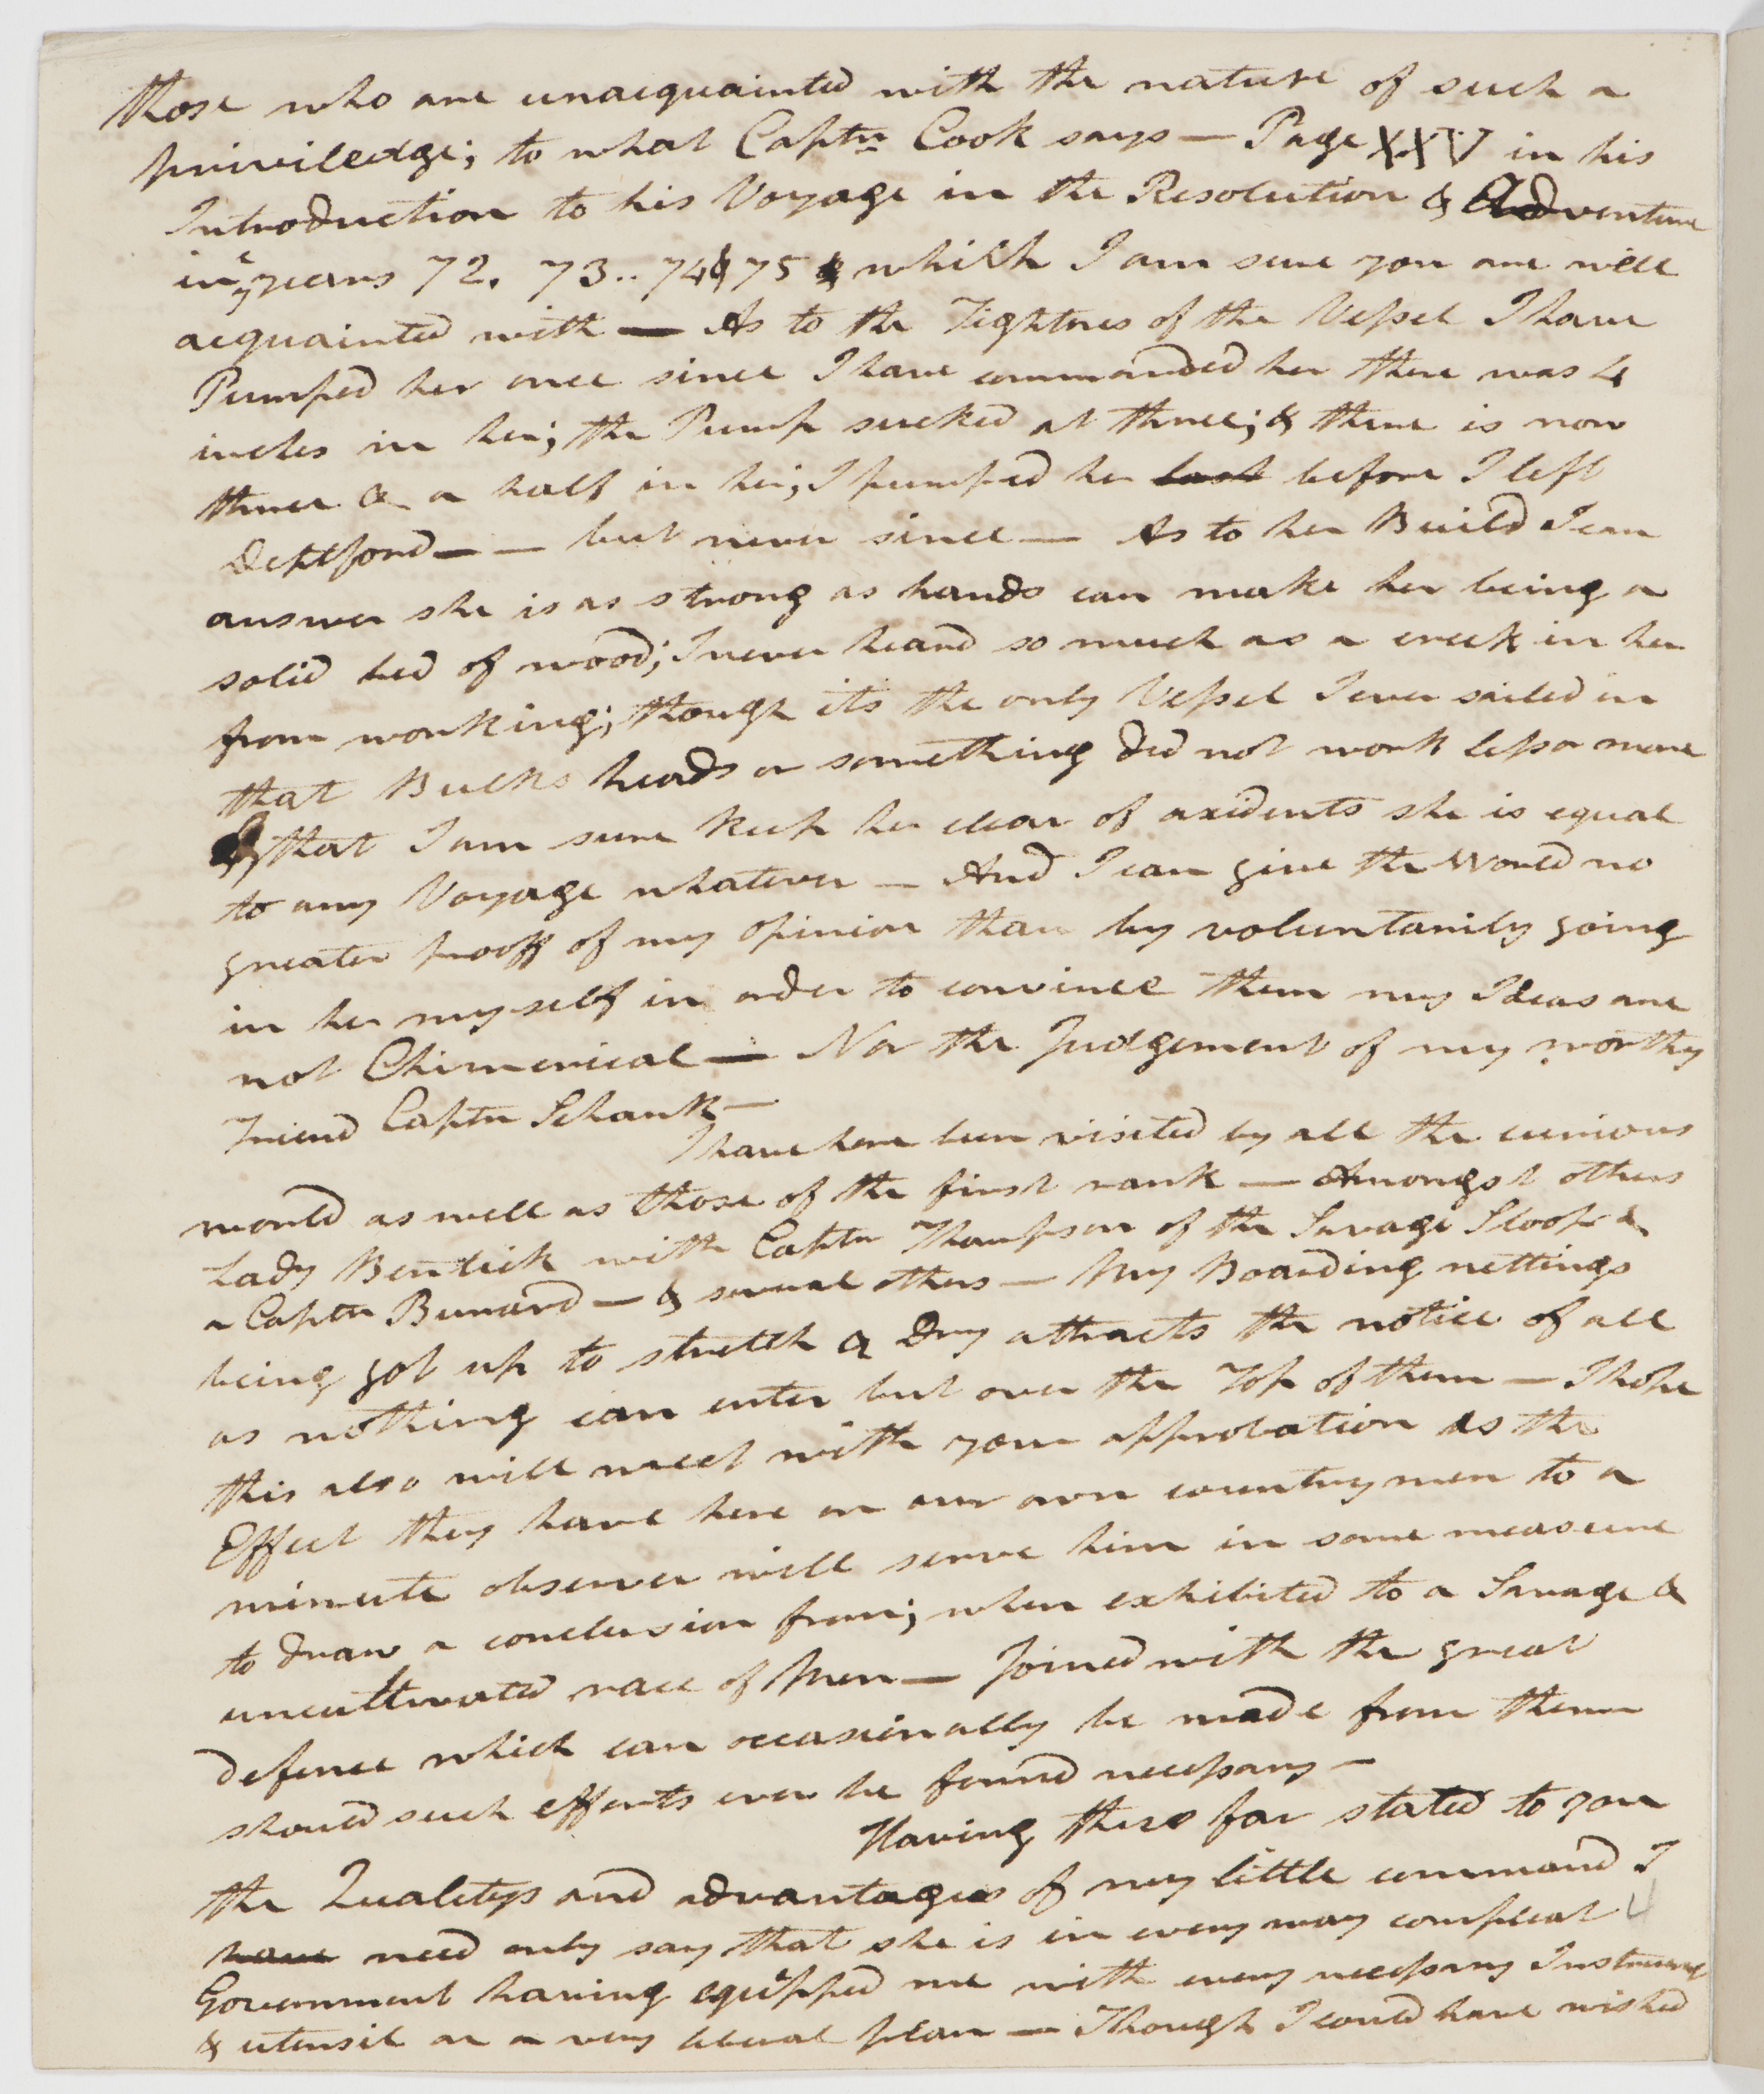 those who are unacquainted with the nature of such a
priviledge; to what Captn Cook says — Page XXV in his
Introduction to his Voyage in the Resolution & Adventure
in ye years 72. 73.. 74 & 75 & which I am sure you are well
acquainted with — As to the Tightnes of the Vessel I have
Pumped her once since I have commanded her there was 4
inches in her; the Pump sucked at three; & there is now
three & a half in her; I pumped her last before I left
Deptford — — but never since — As to her Build I can
answer she is as strong as hands can make her being a
solid bed of wood; I never heard so much as a creek in her
from working; though its the only Vessel I ever sailed in
that Bulks heads or something did not work less or more
& that I am sure keep her clear of axidents she is equal
to any Voyage whatever — And I can give the World no
greater prooff of my opinion than by voluntarily going
in her myself in order to convince them my Ideas are
not Chimerical — Nor the Judgement of my worthy
Friend Captn Schank —
I have here been visited by all the curious
world as well as those of the first rank — Amongst others
Lady Bentick with Captn Thompson of the Savage Sloop &
a Captn Burnard — & several others — My Boarding nettings
being got up to stretch & Dry attracts the notice of all
as nothing can enter but over the Top of them — I hope
this also will meet with your approbation as the
Effect they have here on our own countrymen to a
minute observer will serve him in some measure
to draw a conclusion from; when exhibited to a Savage &
uncultivated race of Men — Joined with the great
defence which can occasinally be made from them
should such efforts ever be found necessary —
Having thus far stated to you
the Qualitys and advantages of my little command I
have need only say that she is in every way compleat
Government having equipped me with every necessary Instrument
& utensil on a very liberal plan — Though I could have wished
4